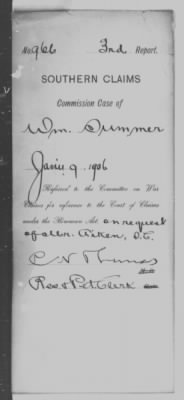 No. 966 3nd Report.
SOUTHERN CLAIMS
Commission Case of
Wm. Summer
Jany 9. 1906
Referred to the Committee on War
Claims for reference to the Court of Claims
under the Bowman Act, on request
of Mr. Aiken, S.C.
C N Thomas
Res & Pet Clerk